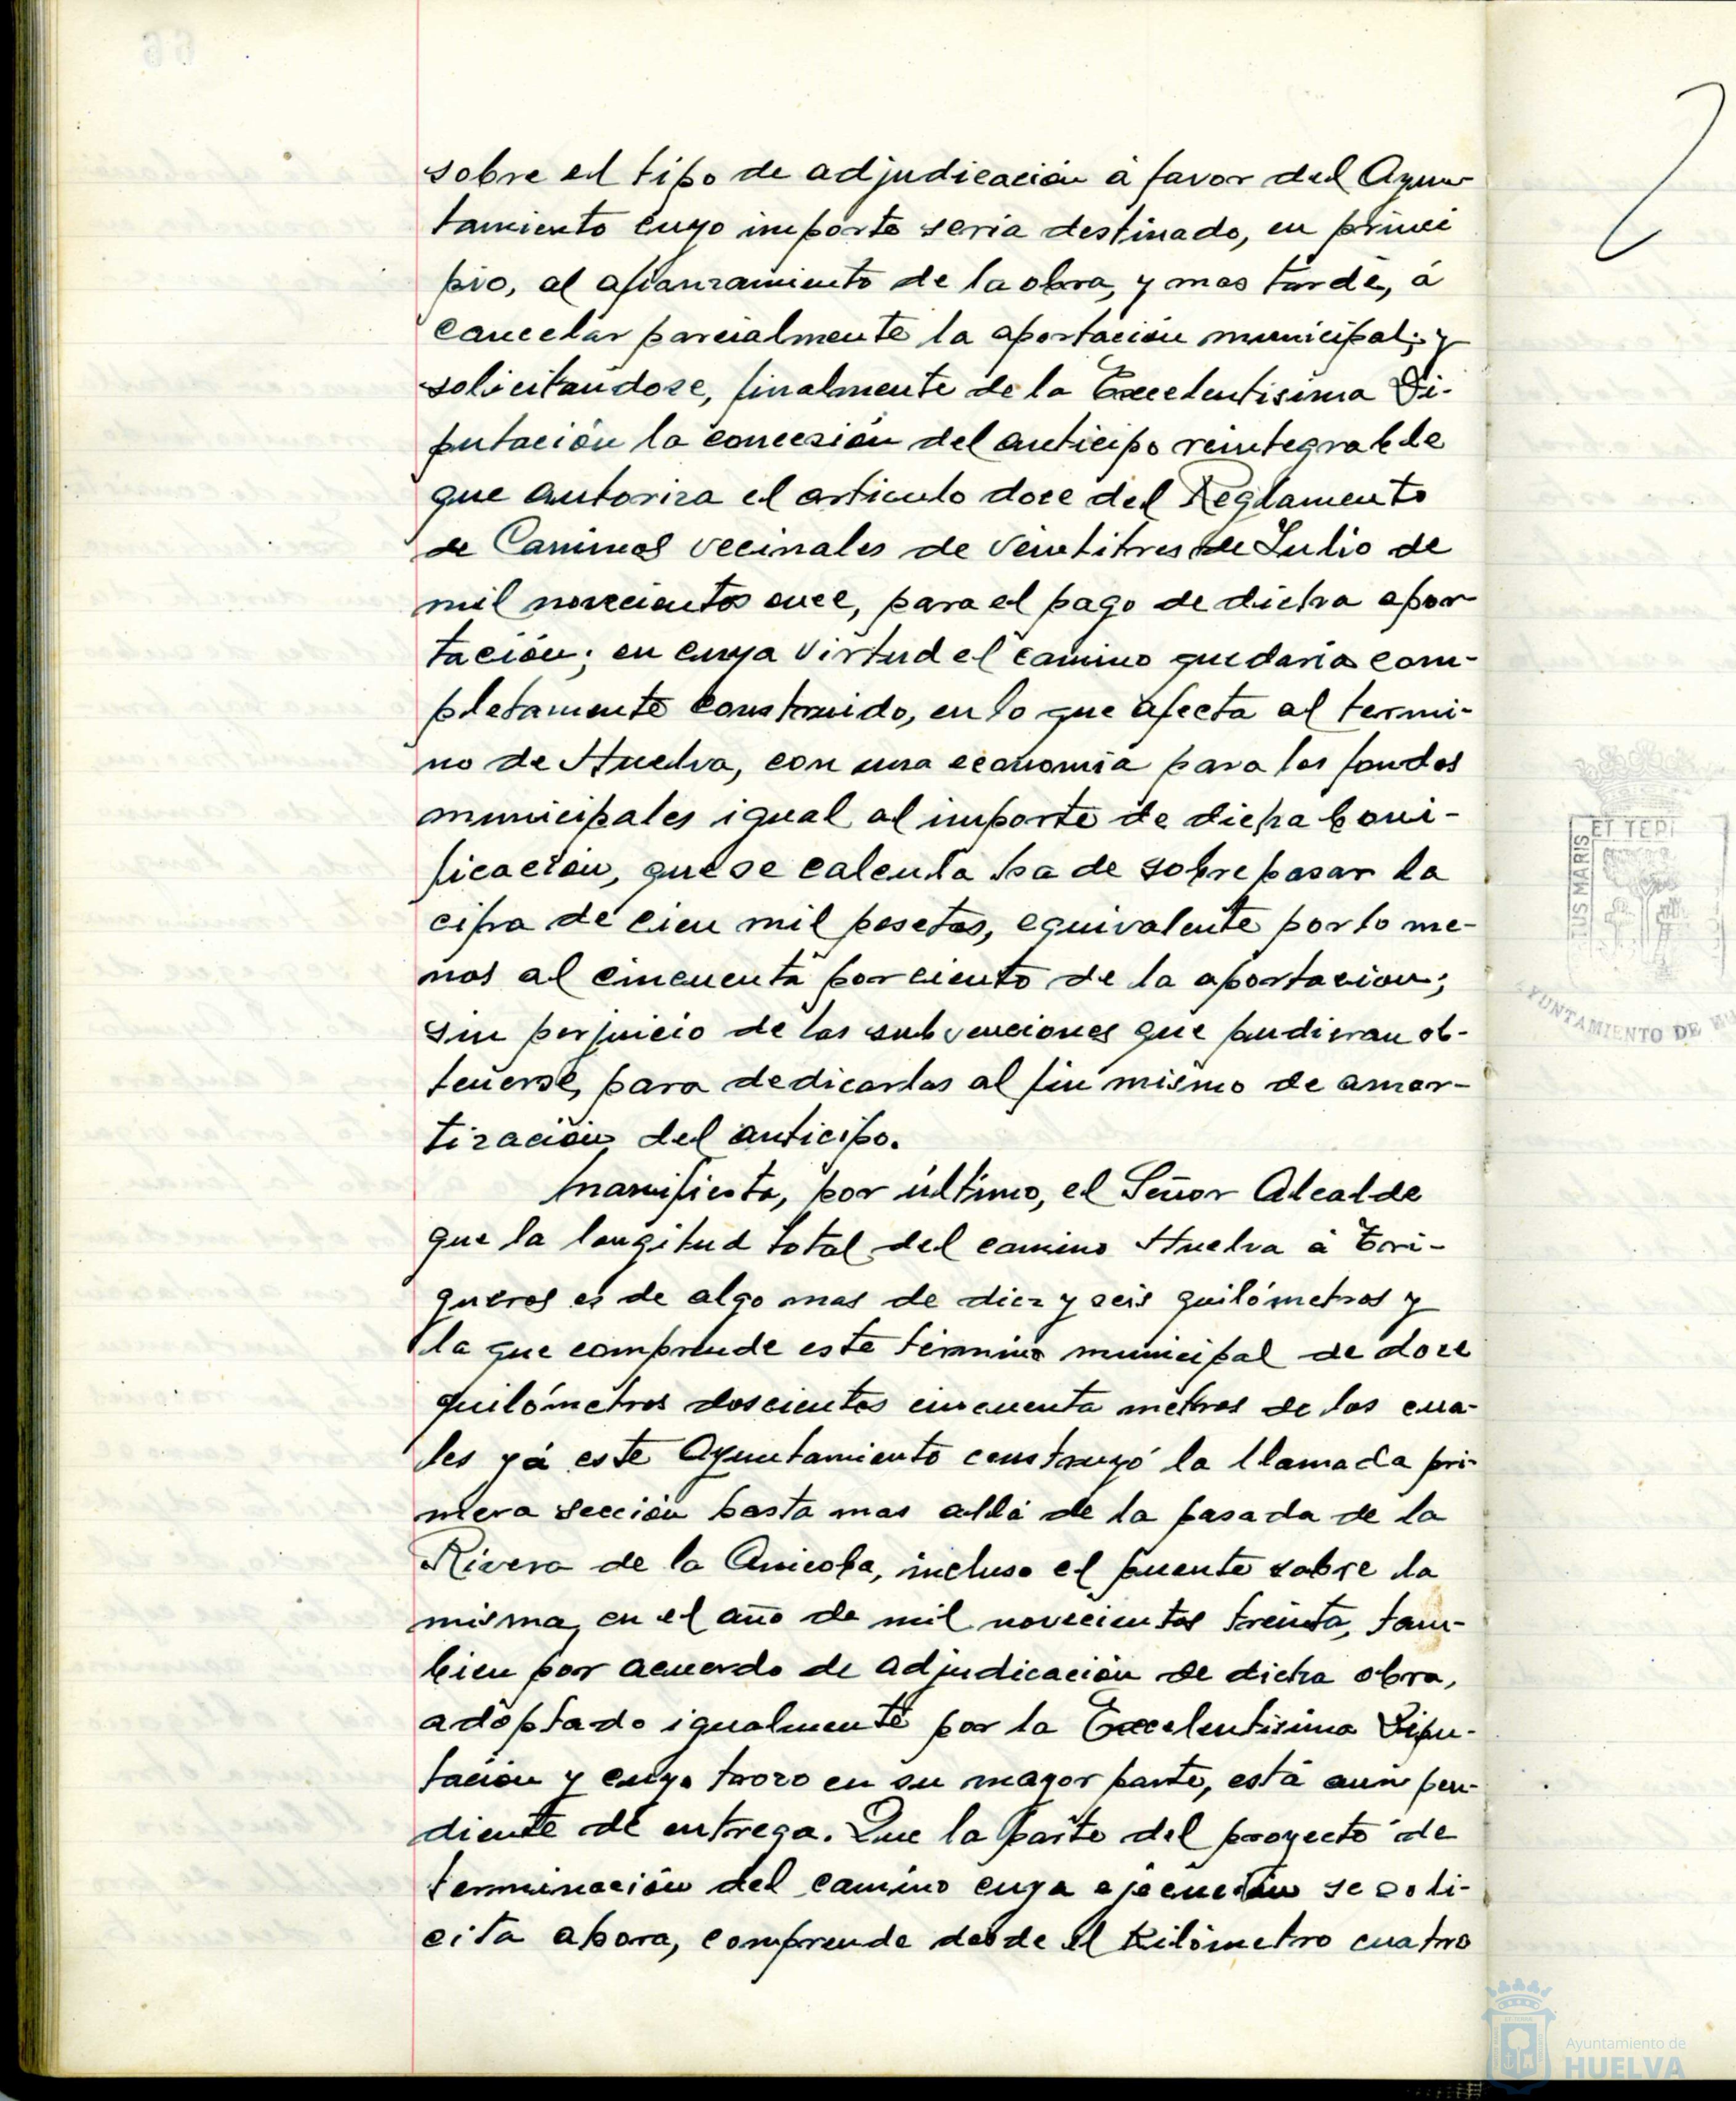 sobre el tipo de adjudicación á favor del Ayun-
tamiento cuyo importe seria destinado, en princi
pio, al afianzamiento de la obra, y mas tarde, á
cancelar parcialmente la aportación municipal; y
solicitandose, finalmente de la Excelentisima Di-
putación la concesión del anticipo reintegrable
que autoriza el articulo doce del Reglamento
de Caminos vecinales de veintitres de Julio de
mil novecientos once, para el pago de dicha apor-
tación; en cuya virtud el camino quedaria com-
pletamente construido, en lo que afecta al termi-
no de Huelva, con una economia para los fondos
municipales igual al importe de dicha boni-
ficación, que se calcula ha de sobrepasar la
cifra de cien mil pesetas, equivalente por lo me-
nos al cincuenta por ciento de la aportacion;
sin perjuicio de las subvenciones que pudieran ob-
tenerse, para dedicarlas al fin mismo de amor-
tización del anticipo.
Manifiesta, por último, el Señor Alcalde
que la longitud total del camino Huelva á Tri-
gueros es de algo mas de diez y seis quilómetros y
la que comprende este término municipal de doce
quilómetros doscientos cincuenta metros de los cua-
les yá este Ayuntamiento construyó la llamada pri-
mera sección hasta mas allá de la pasada de la
Rivera de la Anicoba, incluso el puente sobre la
misma, en el año de mil novecientos treinta, tam-
bien por acuerdo de adjudicación de dicha obra,
adoptado igualmente por la Excelentisima Dipu-
tación y cuyo trozo en su mayor parte, está aun pen-
diente de entrega. Que la parte del proyecto de
terminación del camino cuya ejecución se soli-
cita ahora, comprende desde el Kilómetro cuatro
ET TEPI
TUS MARIS
AYUNTAMIENTO DE HU
Ayuntamiento de
HUELVA